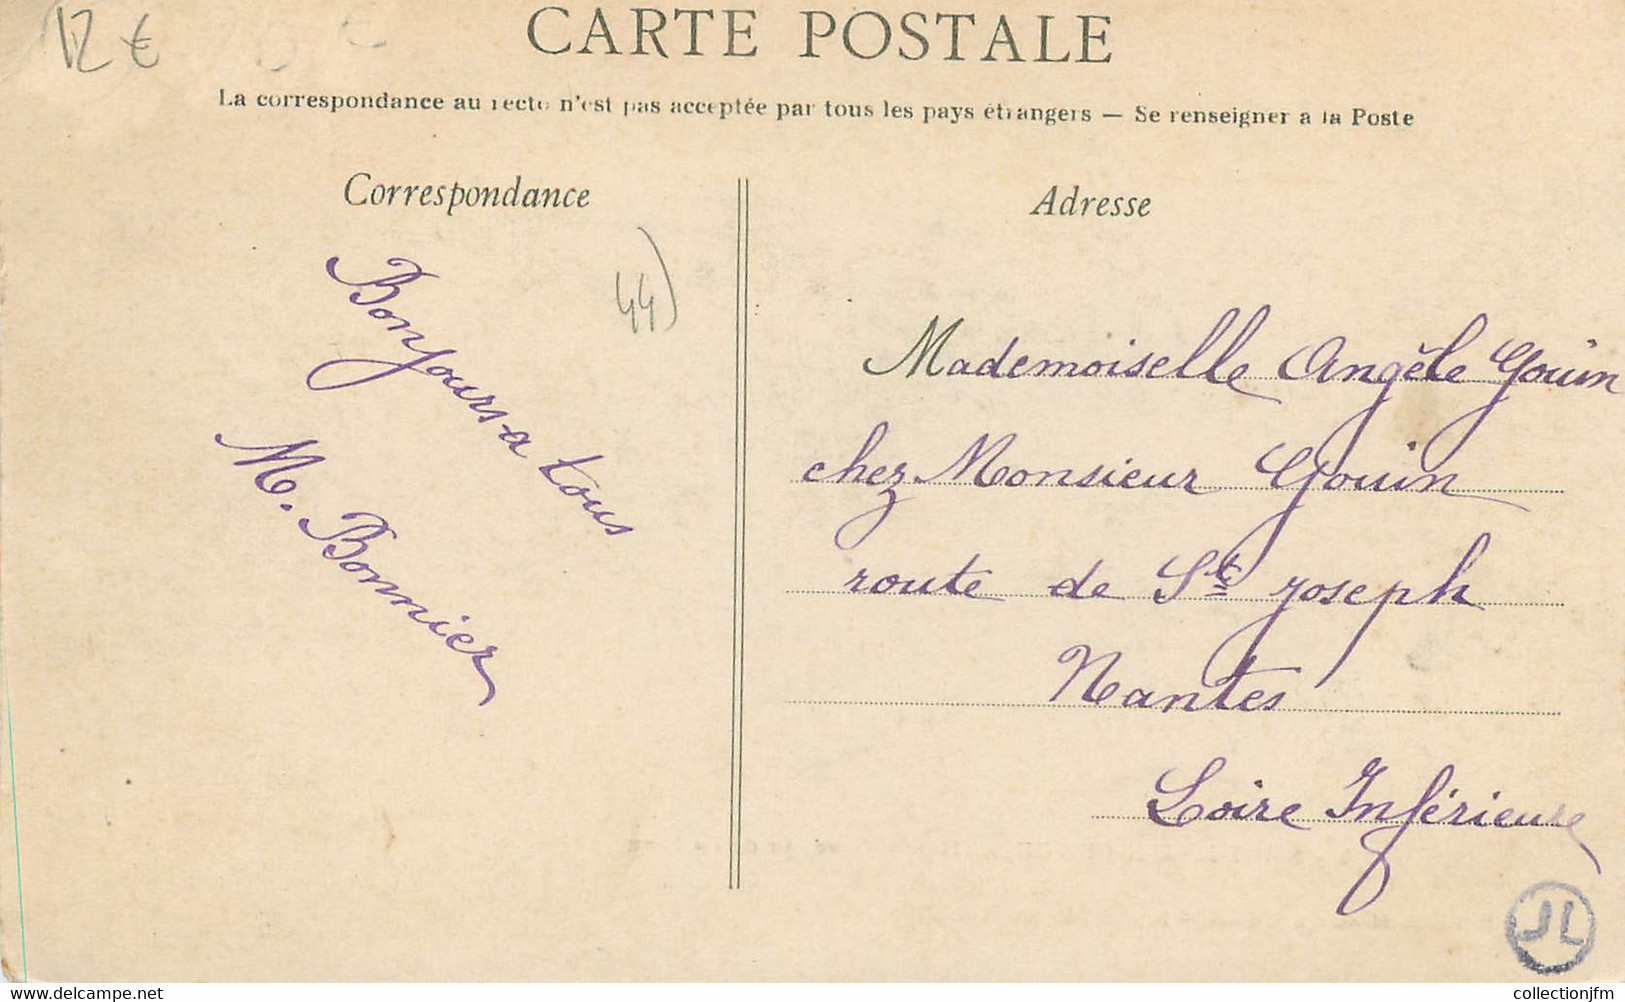 12 €
CARTE POSTALE
La correspondance au recto n'est pas acceptée par tous les pays étrangers — Se renseigner a la Poste
Correspondance
44)
Bonjours a tous
M. Bonnier
Adresse
Mademoiselle Angèle Gouin
chez Monsieur Gouin
route de St Joseph
Nantes
Loire Inférieure
JL
www.delcampe.net
collectionjfm